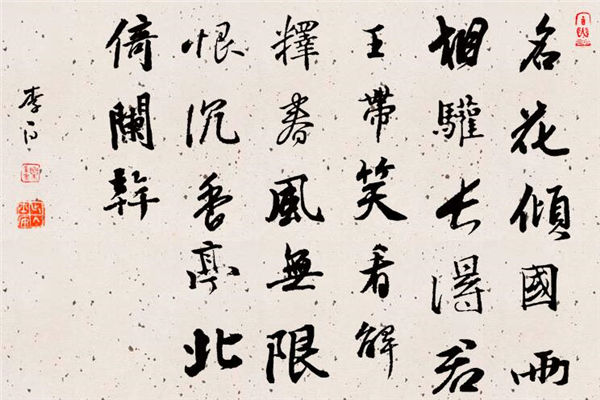 名花傾國兩
相驩長得君
王帶笑看解
釋春風無限
恨沉香亭北
倚闌幹
李